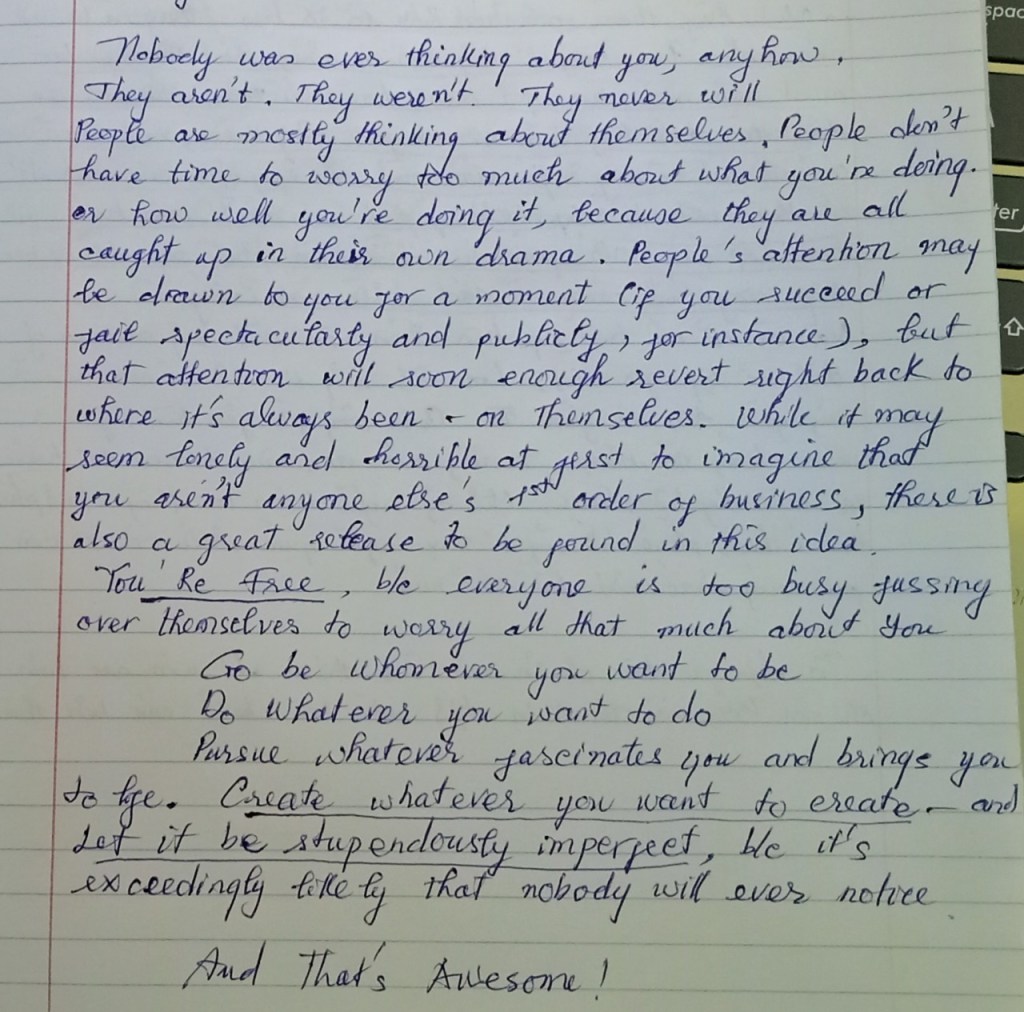 spac
Nobody was ever thinking about you, anyhow.
They aren't. They weren't. They never will
People are mostly thinking about themselves. People don't
have time to worry too much about what you're doing.
or how well you're doing it, because they are all
ter
caught up in their own drama. People's attention may
be drawn to you for a moment (if you succeed or
fail spectacularly and publicly, for instance), but
that attention will soon enough revert right back to
where it's always been - on Themselves. While it may
seem lonely and horrible at first to imagine that
you aren't anyone else's 1st order of business, there is
also a great release to be found in this idea.
You 're Free, b/c everyone is too busy fussing
over themselves to worry all that much about You
Go be Whomever you want to be
Do Whatever you want to do
Pursue whatever fascinates you and brings you
to life. Create whatever you want to create - and
Let it be stupendously imperfect, b/c it's
exceedingly likely that nobody will ever notice
And That's Awesome!